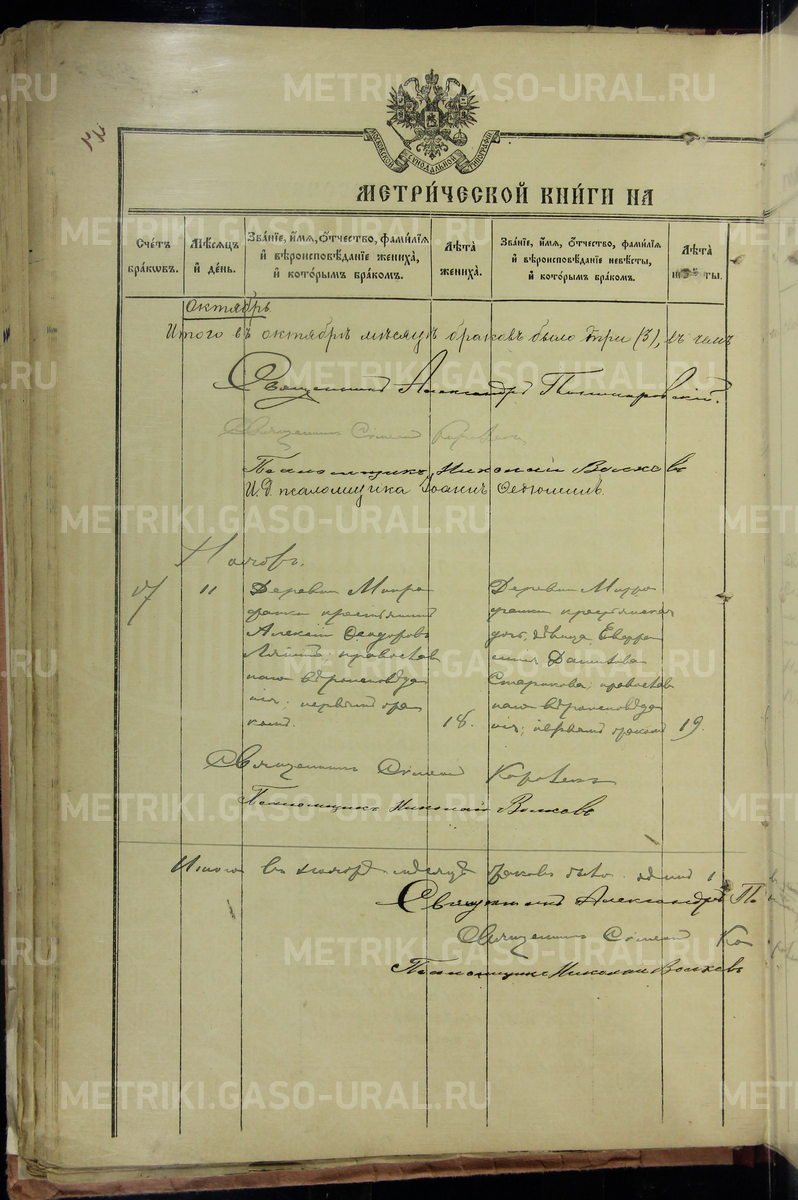 МОСКОВСКОЙ СѴНОДАЛЬНОЙ ТИПОГРАФІИ
МЕТРИ́ЧЕСКОЙ КНИ́ГИ НА
Сче́тъ бра́кѡвъ.
Мѣ́сяцъ и҆ де́нь.
Зва́нїе, и҆́мѧ, ѻ҆́тчество, фами́лїѧ и҆ вѣроисповѣ́данїе жениха̀, и҆ кото́рымъ бра́комъ.
Лѣ́та жениха̀.
Зва́нїе, и҆́мѧ, ѻ҆́тчество, фами́лїѧ и҆ вѣроисповѣ́данїе невѣ́сты, и҆ кото́рымъ бра́комъ.
Лѣ́та
Октябрь
Итого въ октябрѣ мѣсяцѣ браковъ было три (3), въ чемъ
Священникъ Александръ
Священникъ Симеон Коровин
Псаломщикъ Николай Волковъ
И. д. псаломщика Іоаннъ
Ноябрь.
17
11
Деревни
крестьянинъ
Алексій Ѳеодоровъ
православ
наго вѣроисповѣда
нія; первымъ бра
комъ.
18.
Деревни
крестьянская
дочь, дѣвица Евфро
синія
православ
наго вѣроисповѣда
нія; первымъ бракомъ
19.
Священникъ Симеон Коровин
Псаломщикъ Николай Волковъ
Итого въ ноябрѣ мѣсяцѣ браковъ было один 1
Священникъ Александръ По
Священникъ Симеон Ко
Псаломщикъ Николай Волковъ
METRIKI.GASO-URAL.RU